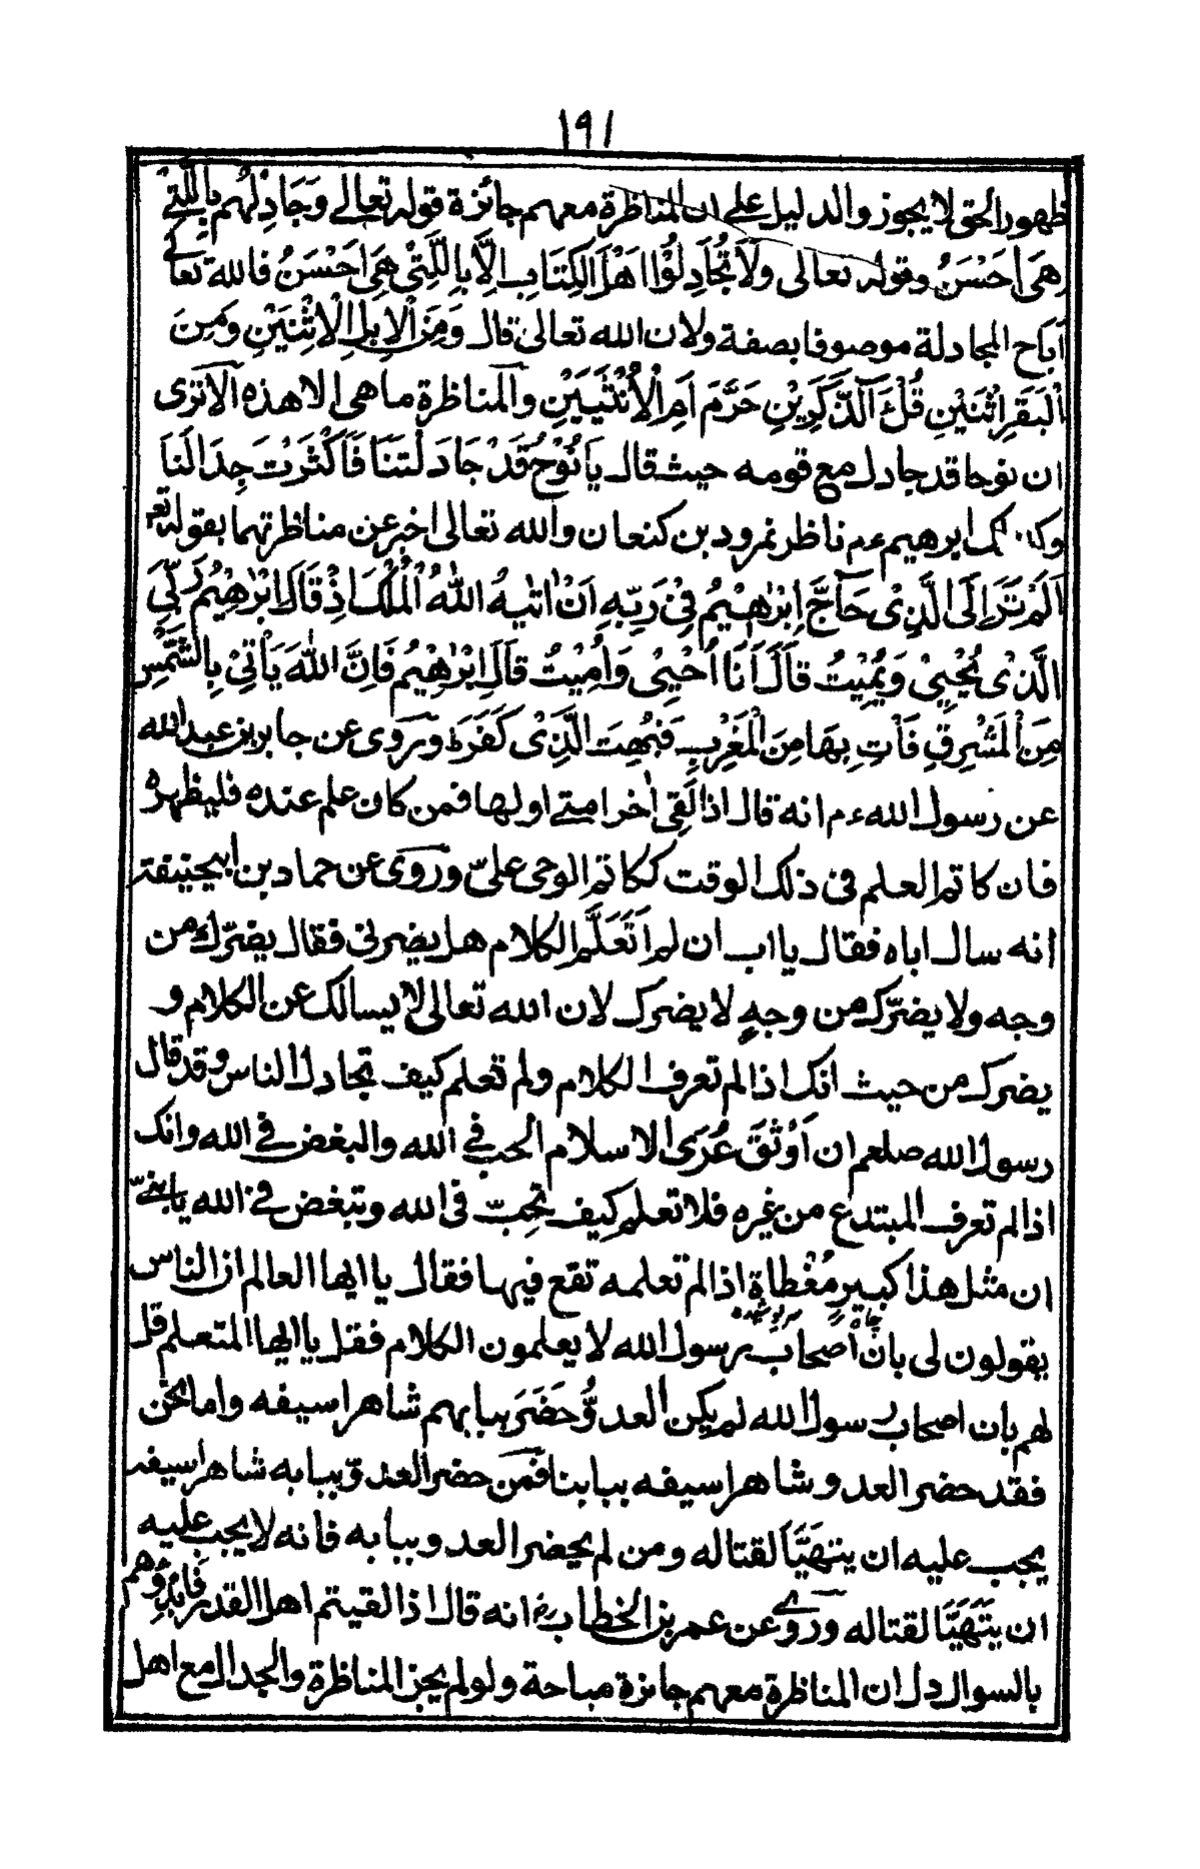 ١٩١
ظهور الحق لا يجوز والدليل على ان المناظرة معهم جائزة قوله تعالى وَجَادِلْهُم بِالَّتِيْ
هِيَ اَحْسَنُ وقوله تعالى وَلَا تُجَادِلُوْا اَهْلَ الكِتَابِ اِلَّا بِالَّتِيْ هِيَ اَحْسَنُ فالله تعالى
اَبَاح المجادلة موصوفا بصفة ولان الله تعالى قال وَمِنَ الْاِبِلِ الْاِثْنَيْنِ وَمِنَ
الْبَقَرِ اثْنَيْنِ قُلْ آلذَّكَرَيْنِ حَرَّمَ اَمِ الْاُنْثَيَيْنِ والمناظرة ما هي الا هذه الا ترى
ان نوحا قد جادل مع قومه حيث قال يَا نُوْحُ قَدْ جَادَلْتَنَا فَاَكْثَرْتَ جِدَالَنَا
وكذلك ابرهيم ءم ناظر نمرود بن كنعان والله تعالى اخبر عن مناظرتهما بقوله تع
اَلَمْ تَرَ اِلَى الَّذِيْ حَآجَّ اِبْرٰهِيْمُ فِيْ رَبِّهِ اَنْ اٰتٰيهُ اللهُ الْمُلْكَ اِذْ قَالَ اِبْرٰهِيْمُ رَبِّيَ
الَّذِيْ يُحْيِيْ وَيُمِيْتُ قَالَ اَنَا اُحْيِيْ وَاُمِيْتُ قَالَ اِبْرٰهِيْمُ فَاِنَّ اللهَ يَاْتِيْ بِالشَّمْسِ
مِنَ الْمَشْرِقِ فَاْتِ بِهَا مِنَ الْمَغْرِبِ فَبُهِتَ الَّذِيْ كَفَرَ ط وروى عن جابر بن عبد الله
عن رسول الله ءم انه قال اذا لَقِيَ اٰخر امتي اولها فمن كان علم عنده فليظهره
فان كاتم العلم في ذلك الوقت ككاتم الوحي عليّ وروى عن حماد بن ابيحنيفة
انه سال اباه فقال يا اب ان لم اَتَعَلَّم الكلام هل يضرني فقال يضرّك من
وجه ولا يضرّك من وجهٍ لا يضرك لان الله تعالى لا يسالك عن الكلام و
يضرك من حيث انك اذا لم تعرف الكلام ولم تعلم كيف تجادل الناس وقد قال
رسول الله صلعم ان اَوْثَقَ عُرَى الاسلام الحب في الله والبغض في الله وانك
اذا لم تعرف المبتدع من غيره فلا تعلم كيف تحبّ في الله وتبغض في الله يا بنيّ
ان مثل هذا كبيرٍ مُغْطاةٍ اذا لم تعلمه تقع فيها فقال يا ايها العالم ان الناس
يقولون لي بان اصحاب رسول الله لا يعلمون الكلام فقل يا ايها المتعلم قل
لهم بان اصحاب رسول الله لم يكن العدوُّ حَضَرَ ببابهم شاهرا سيفه واما نحن
فقد حضر العدو شاهرا سيفه ببابنا فمن حضر العدوّ ببابه شاهرا سيفه
يجب عليه ان يتهَيَّأ لقتاله ومن لم يحضر العدو ببابه فانه لا يجب عليه
ان يَتَهَيَّأ لقتاله وروى عن عمر بن الخطاب رض انه قال اذا لقيتم اهل القدر فابدؤهم
بالسوال دل ان المناظرة معهم جائزة مباحة ولو لم يجز المناظرة والجدال مع اهل